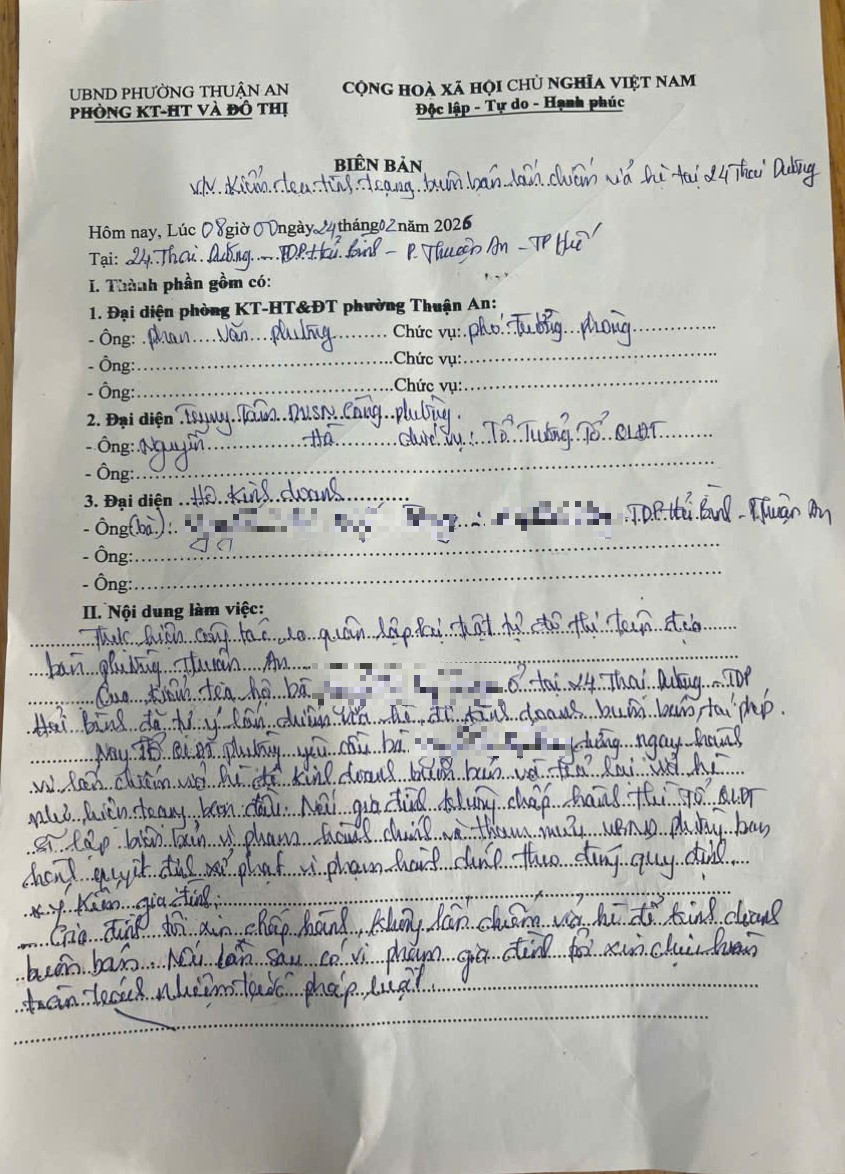 UBND PHƯỜNG THUẬN AN
PHÒNG KT-HT VÀ ĐÔ THỊ
CỘNG HOÀ XÃ HỘI CHỦ NGHĨA VIỆT NAM
Độc lập - Tự do - Hạnh phúc
BIÊN BẢN
V/v. Kiểm tra tình trạng buôn bán lấn chiếm vỉa hè tại 24 Thai Dương
Hôm nay, Lúc 08 giờ 00 Ngày 24 tháng 02 năm 2026
Tại: 24 Thai Dương - TDP Hải Bình - P. Thuận An - TP Huế
I. Thành phần gồm có:
1. Đại diện phòng KT-HT&ĐT phường Thuận An:
- Ông: Phan Văn Phường Chức vụ: phó Trưởng phòng
- Ông: Chức vụ:
- Ông: Chức vụ:
2. Đại diện Trung Tâm DVSN Công phường.
- Ông: Nguyễn Hà chức vụ: Tổ Trưởng Tổ QLĐT
- Ông:
3. Đại diện Hộ kinh doanh
- Ông (bà): TDP Hải Bình - P. Thuận An
- Ông:
- Ông:
II. Nội dung làm việc:
Thực hiện công tác ra quân lập lại trật tự đô thị trên địa
bàn phường Thuận An
Qua kiểm tra hộ bà ở tại 24 Thai Dương - TDP
Hải Bình đã tự ý lấn chiếm vỉa hè để kinh doanh buôn bán trái phép.
Nay Tổ QLĐT phường yêu cầu bà dừng ngay hành
vi lấn chiếm vỉa hè để kinh doanh buôn bán và trả lại vỉa hè
như hiện trạng ban đầu. Nếu gia đình không chấp hành thì Tổ QLĐT
sẽ lập biên bản vi phạm hành chính và tham mưu UBND phường ban
hành quyết định xử phạt vi phạm hành chính theo đúng quy định.
* Ý kiến gia đình:
Gia đình tôi xin chấp hành, không lấn chiếm vỉa hè để kinh doanh
buôn bán. Nếu lần sau có vi phạm gia đình tôi xin chịu hoàn
toàn trách nhiệm trước pháp luật.